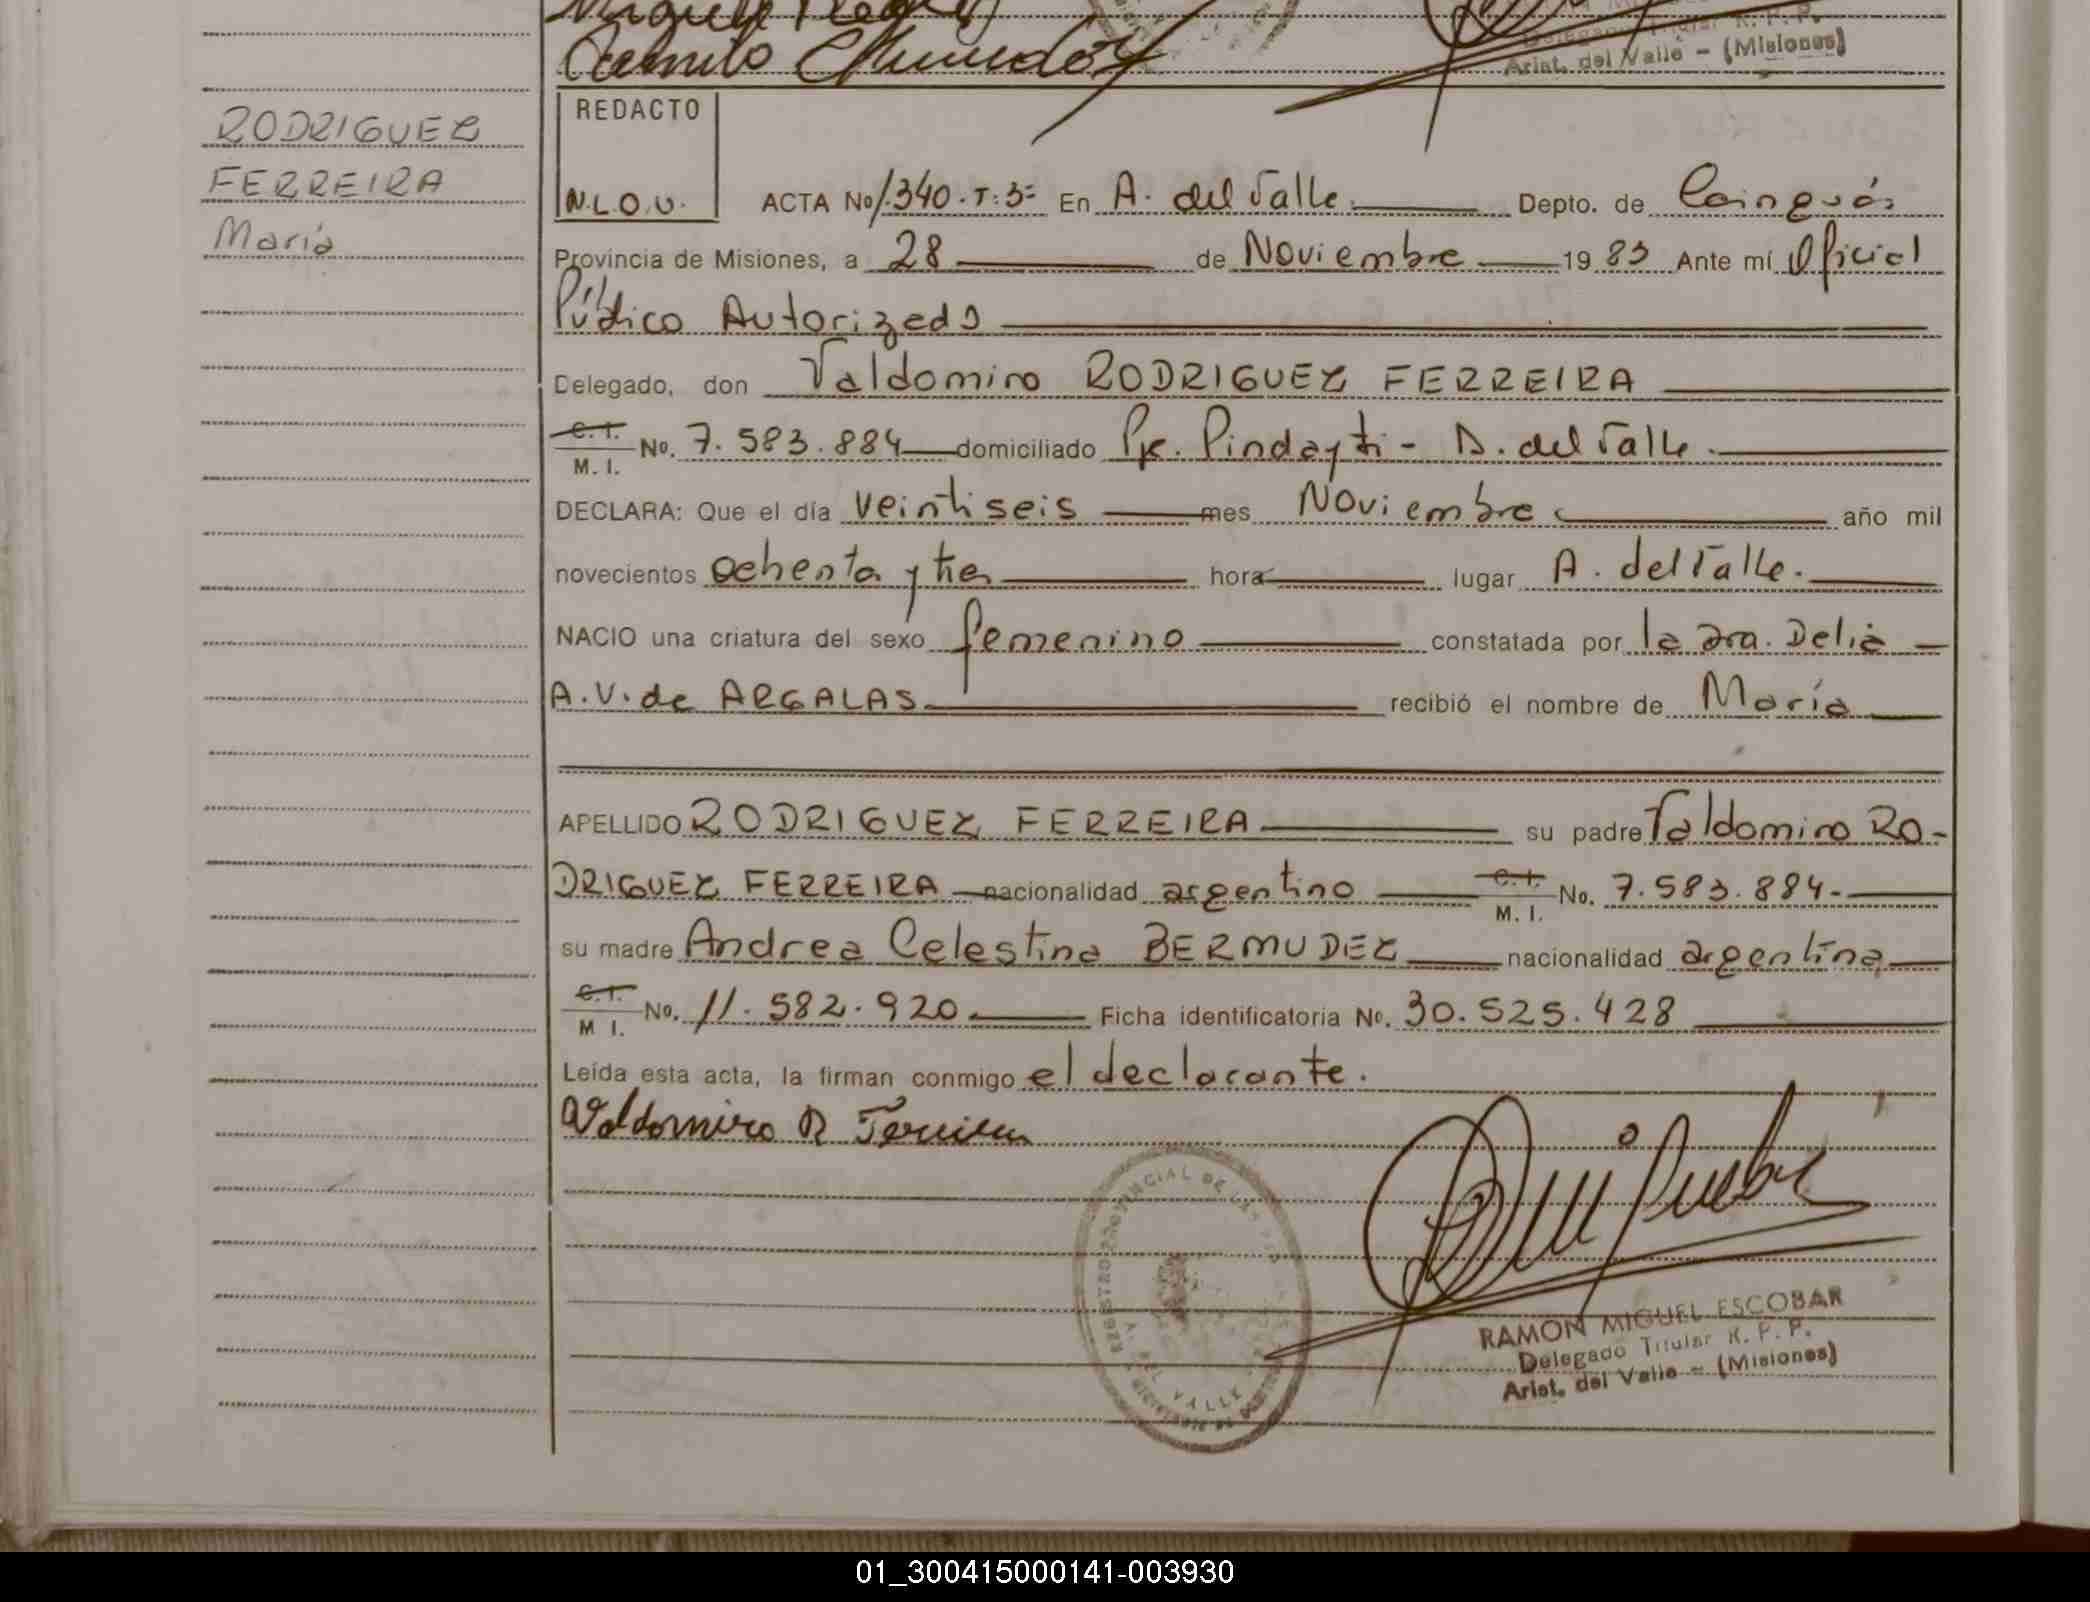 Camilo
Arist. del Valle - (Misiones)
RODRIGUEZ
FERREIRA
María
REDACTO
N.L.O.V.
ACTA No 1.340.T:3= En A. del Valle. Depto. de Cainguás
Provincia de Misiones, a 28 de Noviembre 1983 Ante mí Oficial
Público Autorizado
Delegado, don Valdomiro RODRIGUEZ FERREIRA
C.I.
M. I. No. 7.583.884 domiciliado Pje. Pindayti - A. del Valle.
DECLARA: Que el día veintiseis mes Noviembre año mil
novecientos ochenta y tres hora lugar A. del Valle.
NACIO una criatura del sexo femenino constatada por la Dra. Delia
A.V. de ARGALAS. recibió el nombre de María
APELLIDO RODRIGUEZ FERREIRA su padre Valdomiro RO-
DRIGUEZ FERREIRA nacionalidad argentino C.I. M. I. No. 7.583.884.
su madre Andrea Celestina BERMUDEZ nacionalidad argentina
C.I.
M I. No. 11.582.920. Ficha identificatoria No. 30.525.428
Leída esta acta, la firman conmigo el declarante.
Valdomiro R Ferreira
RAMON MIGUEL ESCOBAR
Delegado Titular R. P. P.
Arist. del Valle - (Misiones)
01_300415000141-003930